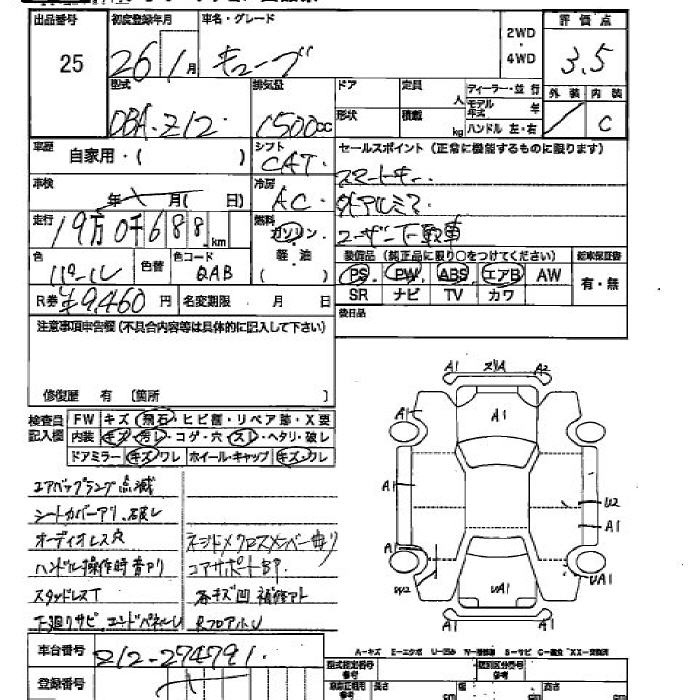 出品番号 初度登録年月 車名・グレード 2WD・4WD 評価点
25 26 1月 キューブ 3.5
外装 内装
C
型式 排気量 ドア 定員 人 ディーラー・並行
モデル年式 年
DBA-Z12 1500cc 形状 積載 kg ハンドル 左・右
車歴 自家用・( ) シフト CAT セールスポイント (正常に機能するものに限ります)
スマートキー
車検 年 月( 日) 冷房 AC 社外アルミ
走行 19万0千688km 燃料 ガソリン・軽油( ) ユーザー下取車
色 パール 色替 色コード QAB
装備品 (純正品に限り○をつけてください) 新車保証書
PS PW ABS エアB AW 有・無
SR ナビ TV カワ
R券 ¥9,460円 名変期限 月 日
後日品
注意事項申告欄(不具合内容等は具体的に記入して下さい)
修復歴 有 〔箇所 〕
検査員記入欄 FW キズ・飛石・ヒビ割・リペア跡・X要
内装 キズ・汚レ・コゲ・穴・スレ・ヘタリ・破レ
ドアミラー キズ・ワレ ホイール・キャップ キズ・ワレ
エアバックランプ点滅
シートカバーアリ、破レ
オーディオレス穴
ハンドル操作時音アリ
スタッドレスT
下廻りサビ エンドパネルU
コアサポート
キズ凹 補修アト
RフロアハシU
A1 A2
A1 A1
A1 A1
A1 U2
A1
W2 UA1 UA1
A-キズ E-エクボ U-凹み W-補修跡 S-サビ C-腐食 XX-交換済
車台番号 Z12-274791
登録番号
型式指定番号 参考 類別区分番号 参考
長さ cm 幅 cm 高さ cm